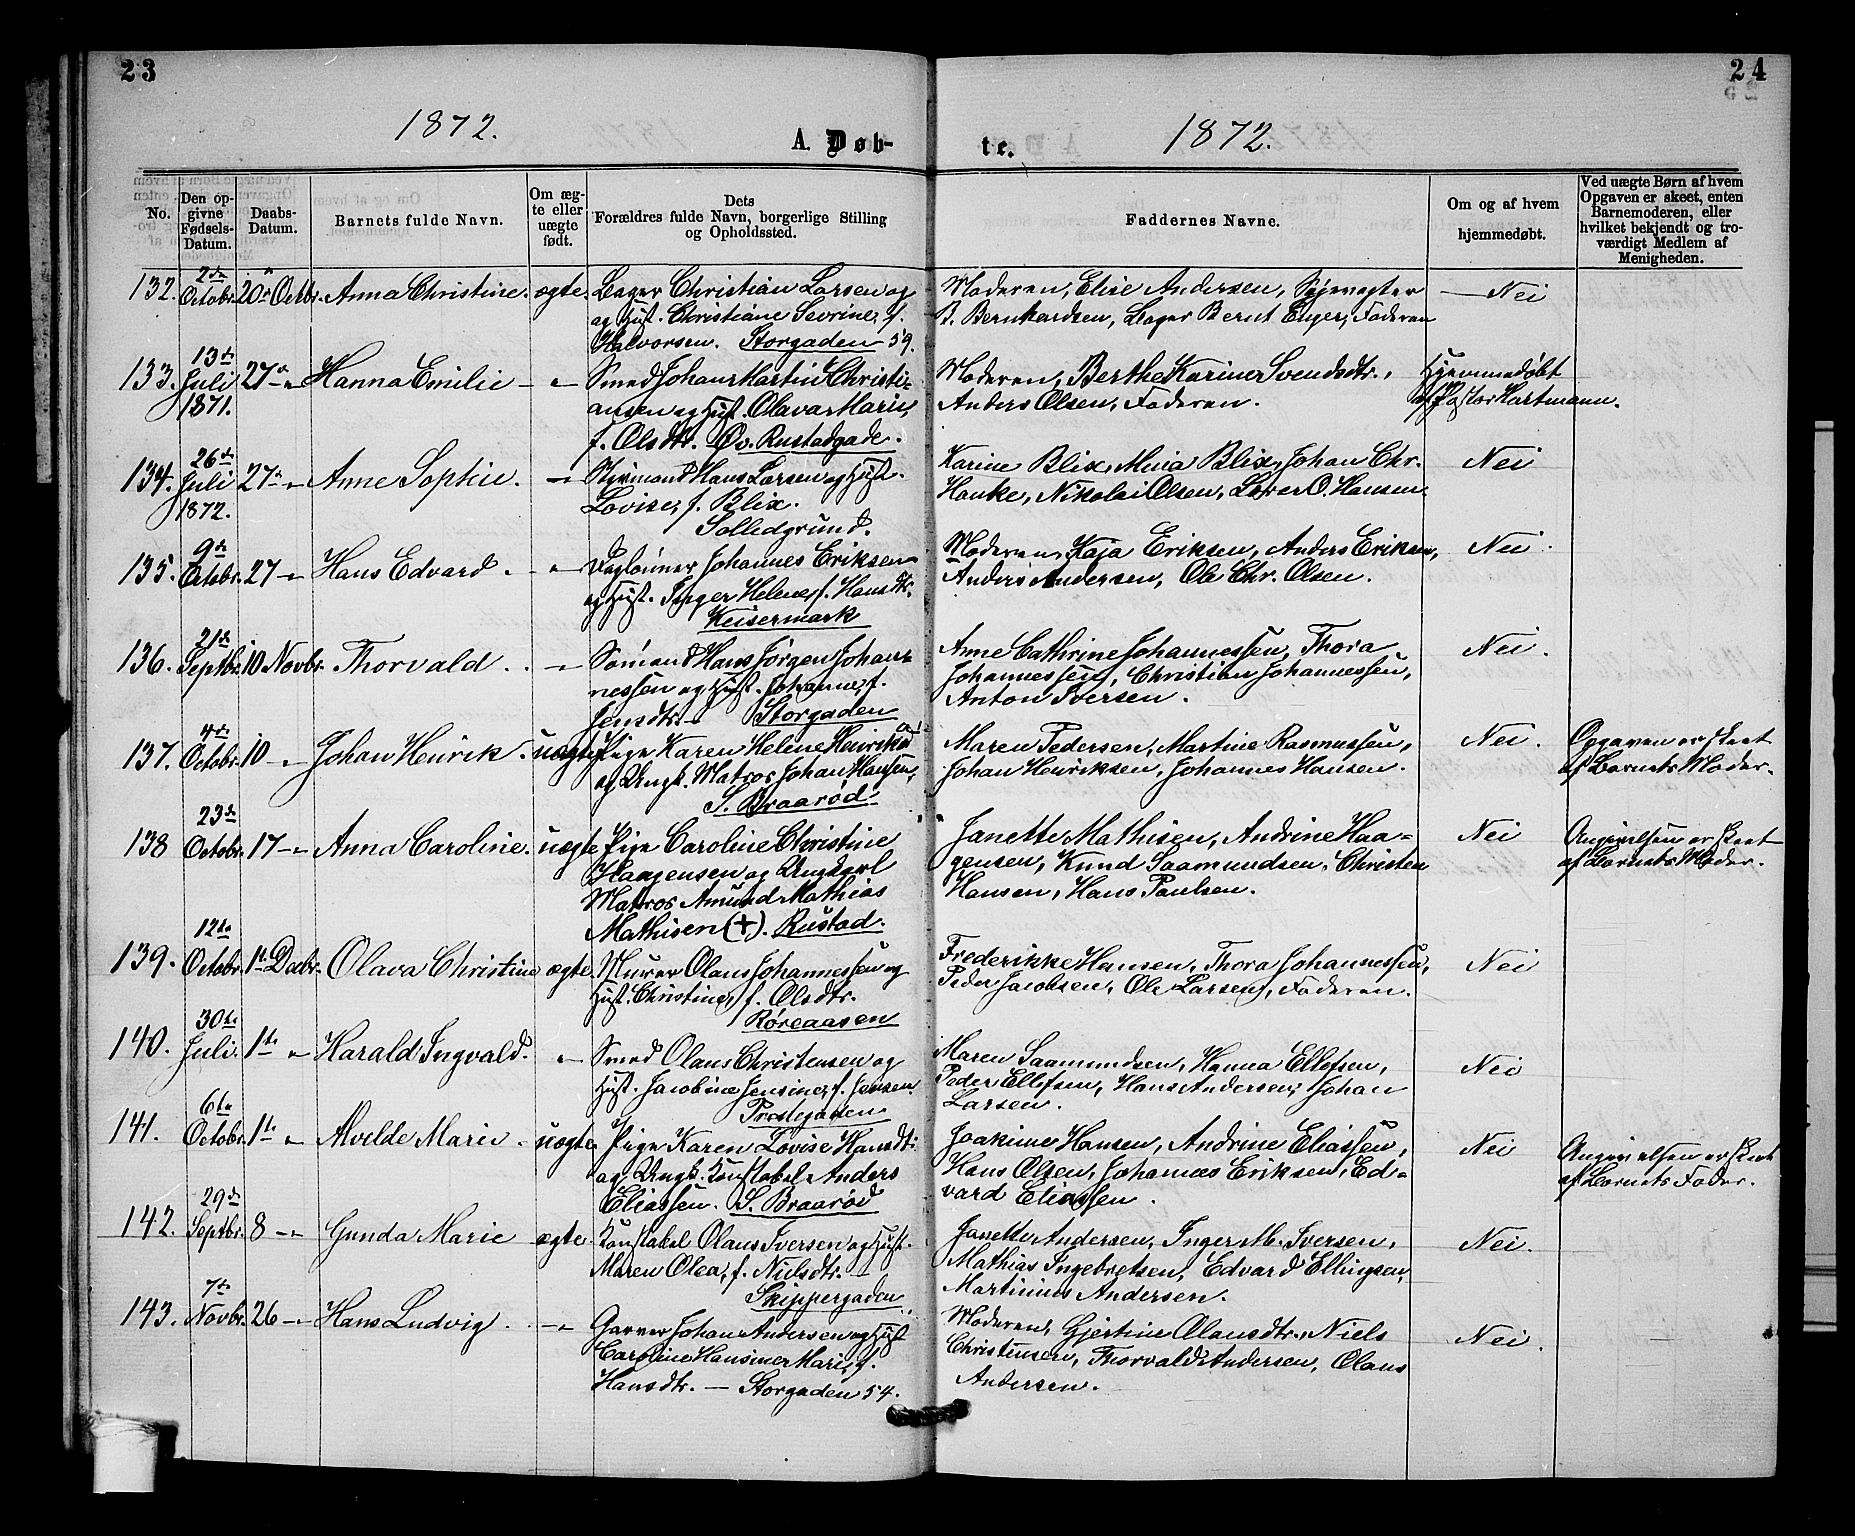 23
24
1872.
A. Døb-
te.
1872.
No.
Den op-
givne
Fødsels-
Datum.
Daabs-
Datum.
Barnets fulde Navn.
Om æg-
te eller
uægte
født.
Dets
Forældres fulde Navn, borgerlige Stilling
og Opholdssted.
Faddernes Navne.
Om og af hvem
hjemmedøbt.
Ved uægte Børn af hvem
Opgaven er skeet, enten
Barnemoderen, eller
hvilket bekjendt og tro-
værdigt Medlem af
Menigheden.
132. 2den Octobr. 20de Octbr. Anna Christine. ægte.
Bager Christian Larsen og
og Hust. Christiane Sevrine, f.
Halvorsen. Storgaden 59.
Moderen, Elise Andersen,
B. Bernhardsen, Bager Bernt Enger, Faderen
Nei
133. 13de Juli 1871. 27de " Hanna Emilie - "
Smed Johan Martin Christi-
ansen og Hust. Olava Marie,
f. Olsdtr. Øv. Rustadgade.
Moderen, Berthe Karine Svendsdtr.,
Anders Olsen, Faderen.
Hjemmedøbt
af Pastor Hartmann.
134. 26de Juli 1872. 27de " Anne Sophie. - "
Styrmand Hans Larsen og Hust.
Lovise, f. Blix.
Solliedgrund.
Karine Blix, Maria Blix, Johan Chr.
Hauke, Nikolai Olsen, Lærer O. Hansen.
Nei
135. 9de Octobr. 27 - " Hans Edvard. - "
Daglønner Johannes Eriksen
og Hust. Inger Helene, f. Hansdtr.
Keisermark
Moderen, Kaja Eriksen, Anders Eriksen,
Anders Andersen, Ole Chr. Olsen.
Nei.
136. 21de Septbr. 10 Novbr. Thorvald. - "
Sømand Hans Jørgen Johan-
nessen og Hust. Johanne, f.
Jensdtr. - Storgaden
Anne Cathrine Johannessen, Thora
Johannessen, Christian Johannessen,
Anton Iversen.
Nei.
137. 4de Octobr. 10 - " Johan Henrik. uægte
Pige Karen Helene Henriksd
og Ungk. Matros Johan Hansen,
S. Braarød
Maren Pedersen, Martine Rasmussen,
Johan Henriksen, Johannes Hansen.
Nei.
Opgaven er skeet
af Barnets Moder.
138 23de Octobr. 17 - " Anna Caroline. uægte
Pige Caroline Christine
Haagensen og Ungkarl
Matros Amund Mathias
Mathisen (+). Rustad.
Janette Mathisen, Andrine Haa-
gensen, Knud Saamundsen, Christen
Hansen, Hans Paulsen.
Nei
Angivelsen er skeet
af Barnets Moder.
139. 12te Octobr. 1te Decbr. Olava Christine ægte.
Murer Olaus Johannessen og
Hust. Christine, f. Olsdtr.
Røreaasen
Frederikke Hansen, Thora Johannessen,
Peder Jacobsen, Ole Larsen, Faderen.
Nei
140. 30te Juli. 1te " Harald Ingvald. "
Smed Olaus Christensen og
Hust. Jacobine Jensine, f. Jensen.
Maren Saamundsen, Hanna Ellefsen,
Peder Ellefsen, Hans Andersen, Johan
Larsen.
Nei
141. 6te Octobr. 1te " Alvelde Marie. uægte
Pige Karen Lovise Hansdtr.
og Ungk. Konstabel Anders
Eliassen. S. Braarød
Joakime Hansen, Andrine Eliassen,
Hans Olsen, Johannes Eriksen, Ed-
vard Eliassen.
Nei
Angivelsen er skeet
af Barnets Fader.
142. 29de Septbr. 8 - " Gunda Marie ægte.
Konstabel Olaus Iversen og Hust.
Maren Olea, f. Nielsdtr. -
Skippergaden
Janette Andersen, Inger M. Iversen,
Mathias Ingebretsen, Edvard Ellingsen,
Martinius Andersen.
Nei.
143. 7de Novbr. 26 - " Hans Ludvig. - "
Garver Johan Andersen og Hust
Caroline Hansine Marie, f.
Hansdtr. - Storgaden 54.
Moderen, Gjestine Olausdtr., Niels
Christensen, Thorvald Andersen, Olaus
Andersen.
Nei.